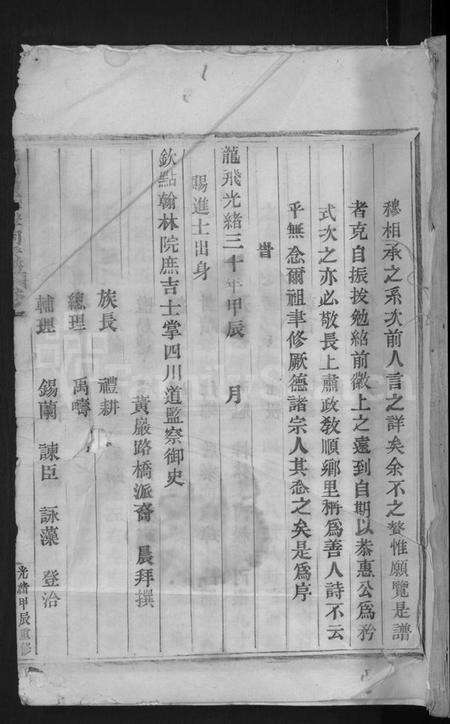 穆相承之系次前人言之詳矣余不之贅惟願覽是譜
者克自振拔勉紹前徽上之遠到自期以恭惠公為矜
式次之亦必敬長上肅政教順鄉里稱為善人詩不云
乎無念爾祖聿修厥德諸宗人其念之矣是為序
旹
龍飛光緒三十年甲辰 月
賜進士出身
欽點翰林院庶吉士掌四川道監察御史
黃巖路橋派裔 晨拜撰
族長 禮耕
總理 萬
輔理 錫蘭 諫臣 詠藻 登治
光緒甲辰重修